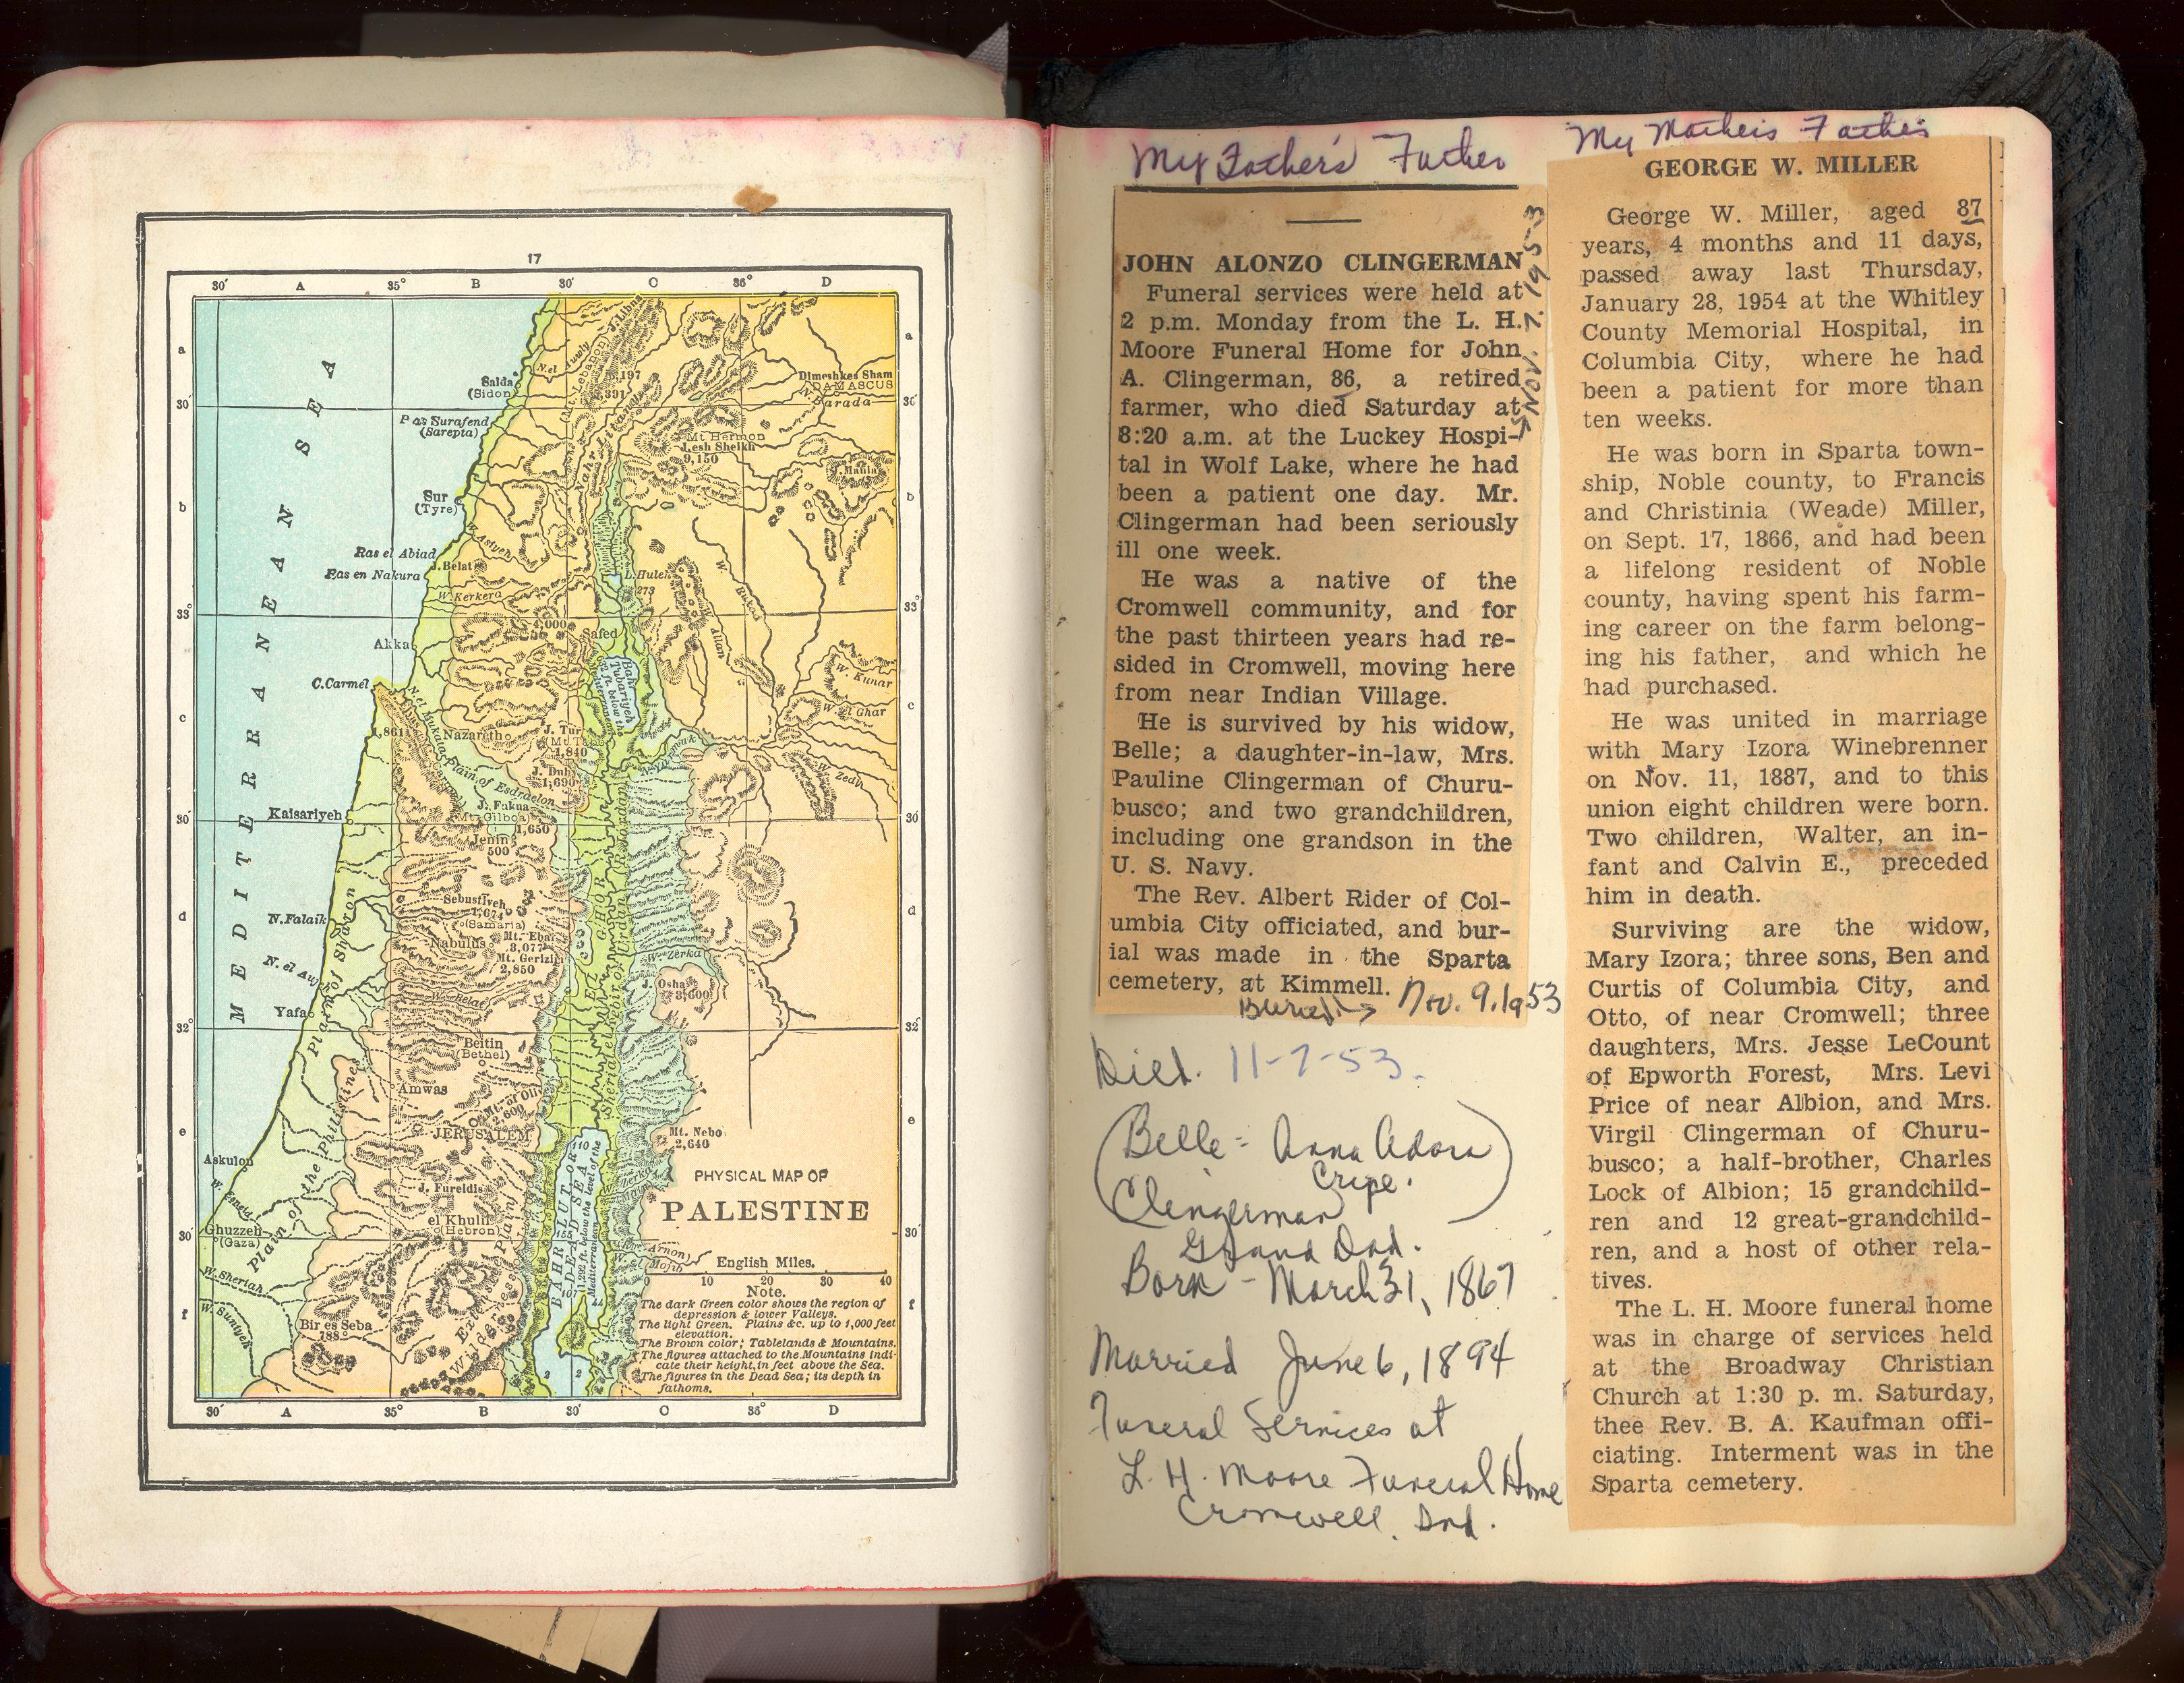 17
30' A 35° B 30' C 36° D
a
b
c
d
e
f
30'
33°
30'
32°
30'
MEDITERRANEAN SEA
Saida
(Sidon)
Ras Surafend
(Sarepta)
Sur
(Tyre)
Ras el Abiad
Ras en Nakura
Akka
C.Carmel
Kaisariyeh
N.Falaik
N. el Auj
Yafa
Askulon
W. Esneid
Ghuzzeh
(Gaza)
W. Sheriah
W. Suniyeh
Bir es Seba
788
Dimeshkes Sham
DAMASCUS
N. Barada
Mt Hermon
J.esh Sheikh
9,150
J. Mania
J.Belat
W. Kerkera
L.Huleh
273
4,000
Safed
Bahr
Tubariyeh
W. Kunar
W. el Ghar
W. Zedy
Nazareth
J. Tur
1,840
J. Duhy
1,690
Plain of Esdraelon
J. Fukua
(Mt. Gilboa)
1,650
Jenin
500
Sebustiyeh
1,674
(Samaria)
Nabulus
Mt. Ebal
3,077
Mt. Gerizim
2,850
W. Zerka
J. Osha
3,600
Plain of Sharon
EL GHOR
Beitin
(Bethel)
Amwas
Mt. of Oliv
2,600
JERUSALEM
Mt. Nebo
2,640
J. Fureidis
el Khulil
(Hebron)
Plain of the Philistines
BAHR LUT OR
DEAD SEA
1,292 ft. below the level of the
Mediterranean
PHYSICAL MAP OF
PALESTINE
English Miles.
10 20 30 40
Note.
The dark Green color shows the region of
depression & lower Valleys.
The light Green. Plains &c. up to 1,000 feet
elevation.
The Brown color; Tablelands & Mountains.
The figures attached to the Mountains indi-
cate their height, in feet above the Sea.
The figures in the Dead Sea; its depth in
fathoms.
30' A 35° B 30' C 36° D
My Father's Father
JOHN ALONZO CLINGERMAN
Funeral services were held at
2 p.m. Monday from the L. H.
Moore Funeral Home for John
A. Clingerman, 86, a retired
farmer, who died Saturday at
8:20 a.m. at the Luckey Hospi-
tal in Wolf Lake, where he had
been a patient one day. Mr.
Clingerman had been seriously
ill one week.
He was a native of the
Cromwell community, and for
the past thirteen years had re-
sided in Cromwell, moving here
from near Indian Village.
He is survived by his widow,
Belle; a daughter-in-law, Mrs.
Pauline Clingerman of Churu-
busco; and two grandchildren,
including one grandson in the
U. S. Navy.
The Rev. Albert Rider of Col-
umbia City officiated, and bur-
ial was made in the Sparta
cemetery, at Kimmell.
Nov. 7, 1953
Buried → Nov. 9. 1953
Died. 11-7-53.
(Belle = Anna Adora
Cripe.
Clingerman)
Grand Dad.
Born - March 31, 1867
Married June 6, 1894
Funeral Services at
L. H. Moore Funeral Home
Cromwell, Ind.
My Mother's Father
GEORGE W. MILLER
George W. Miller, aged 87
years, 4 months and 11 days,
passed away last Thursday,
January 28, 1954 at the Whitley
County Memorial Hospital, in
Columbia City, where he had
been a patient for more than
ten weeks.
He was born in Sparta town-
ship, Noble county, to Francis
and Christinia (Weade) Miller,
on Sept. 17, 1866, and had been
a lifelong resident of Noble
county, having spent his farm-
ing career on the farm belong-
ing his father, and which he
had purchased.
He was united in marriage
with Mary Izora Winebrenner
on Nov. 11, 1887, and to this
union eight children were born.
Two children, Walter, an in-
fant and Calvin E., preceded
him in death.
Surviving are the widow,
Mary Izora; three sons, Ben and
Curtis of Columbia City, and
Otto, of near Cromwell; three
daughters, Mrs. Jesse LeCount
of Epworth Forest, Mrs. Levi
Price of near Albion, and Mrs.
Virgil Clingerman of Churu-
busco; a half-brother, Charles
Lock of Albion; 15 grandchild-
ren and 12 great-grandchild-
ren, and a host of other rela-
tives.
The L. H. Moore funeral home
was in charge of services held
at the Broadway Christian
Church at 1:30 p. m. Saturday,
thee Rev. B. A. Kaufman offi-
ciating. Interment was in the
Sparta cemetery.